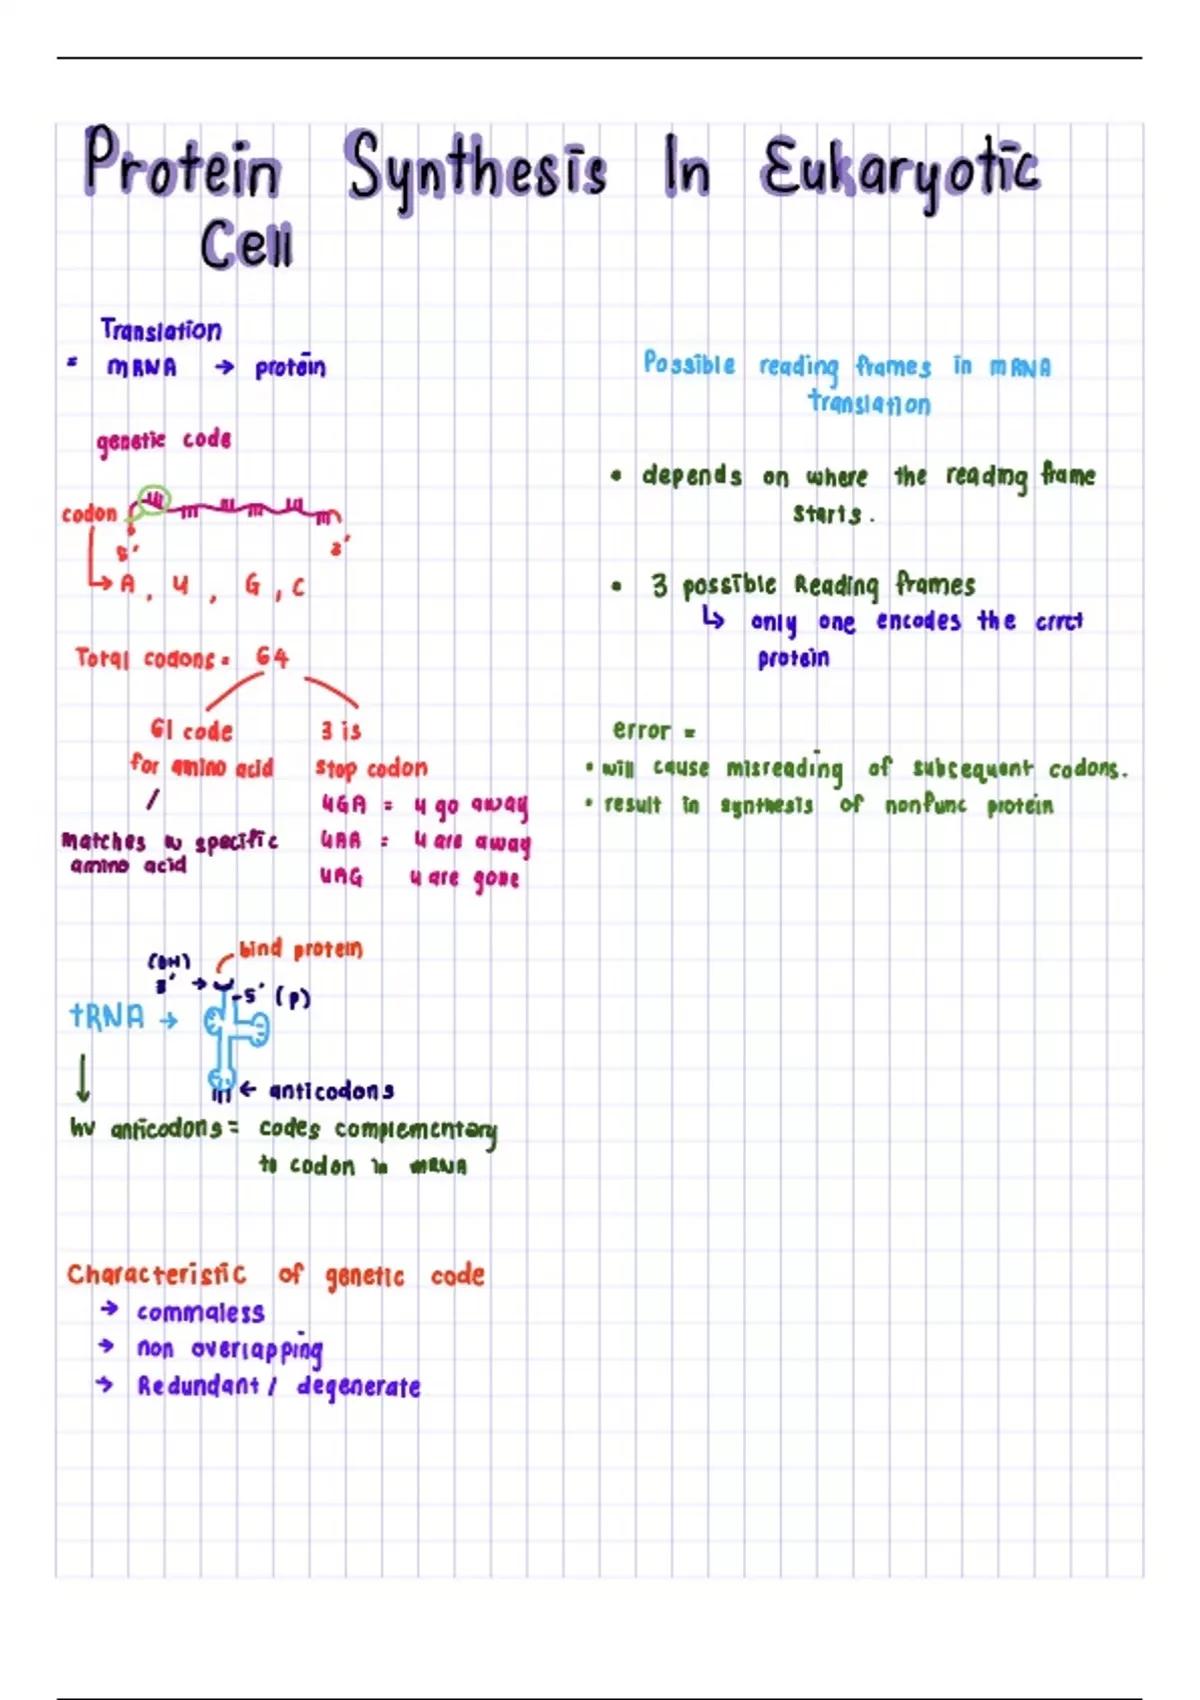 Protein Synthesis In Eukaryotic
Cell
Translation
= mRNA → protein
genetic code
codon
5' 3'
→ A, U, G, C
Total codons = 64
61 code
for amino acid
/
matches w specific
amino acid
3 is
stop codon
UGA = u go away
UAA = u are away
UAG u are gone
bind protein
(OH)
3' →
-5' (P)
tRNA →
← anticodons
↓
hv anticodons = codes complementary
to codon in mRNA
Characteristic of genetic code
→ commaless
→ non overlapping
→ Redundant / degenerate
Possible reading frames in mRNA
translation
• depends on where the reading frame
starts.
• 3 possible Reading frames
↳ only one encodes the crrct
protein
error =
• will cause misreading of subsequent codons.
• result in synthesis of nonfunc protein